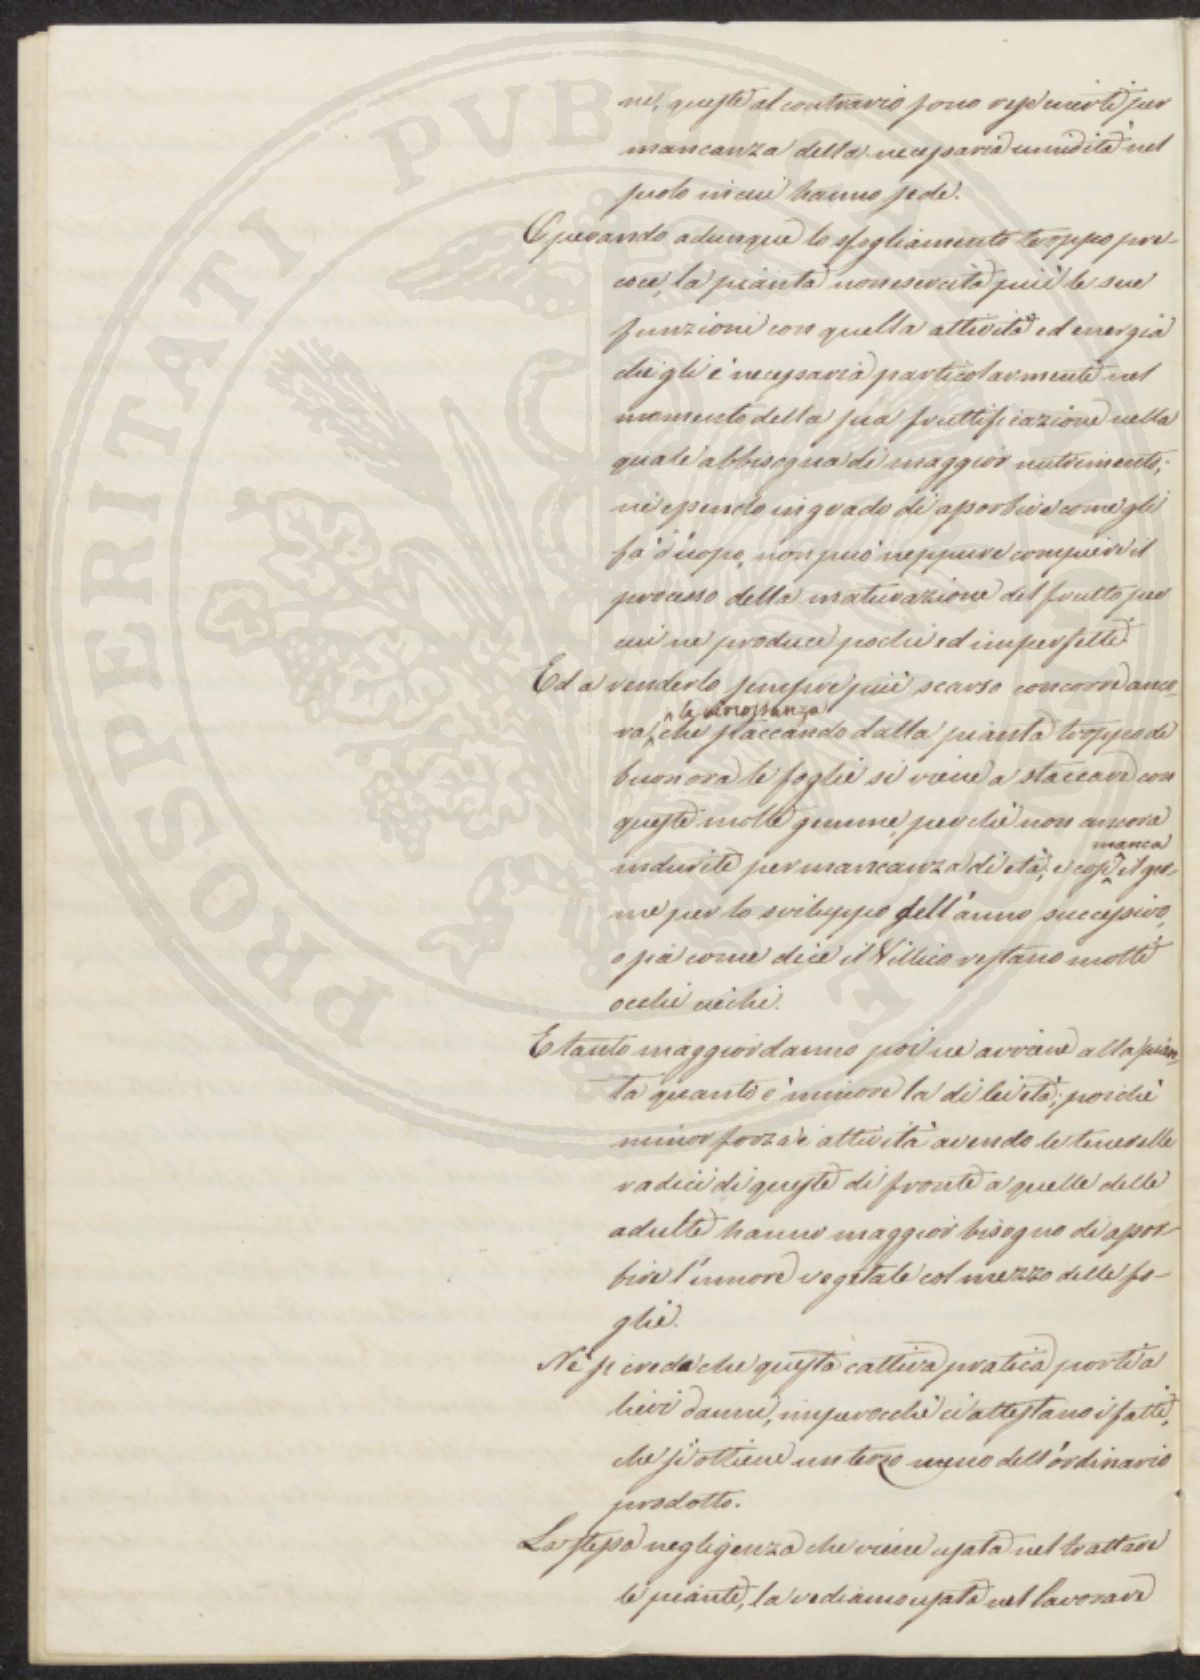 ne, queste al contrario sono resi inerti per
mancanza della necessaria umidità nel
suolo in cui hanno sede.
Operando adunque lo sfogliamento troppo pre-
coce, la pianta non esercita più le sue
funzioni con quella attività ed energia
che gli è necessaria particolarmente nel
momento della sua fruttificazione nella
quale abbisogna di maggior nutrimento;
nè essendo in grado di assorbire come gli
fà d'uopo, non può neppure compiere il
processo della maturazione del frutto per
cui ne produce pochi ed imperfetti
Ed a renderlo sempre più scarso concorre anco-
ra, la circostanza che staccando dalla pianta troppo di
buon ora le foglie si viene a staccare con
queste molte gemme, perchè non ancora
indurite per mancanza di età; e così manca il ger-
me per lo sviluppo dell'anno successivo,
ossia come dice il Villico restano molti
occhi ciechi.
E tanto maggior danno poi ne avviene alla pian-
ta quanto è minore la di lei età; poichè
minor forza e attività avendo le tenerelle
radici di queste di fronte a quelle delle
adulte hanno maggior bisogno di assor-
bire l'umore vegetale col mezzo delle fo-
glie.
Nè si creda che questa cattiva pratica porti a
lievi danni, imperocchè ci attestano i fatti,
che si ottiene un terzo meno dell'ordinario
prodotto.
La stessa negligenza che viene usata nel trattare
le piante, la vediamo usata nel lavorare
PROSPERITATI PVBLICAE